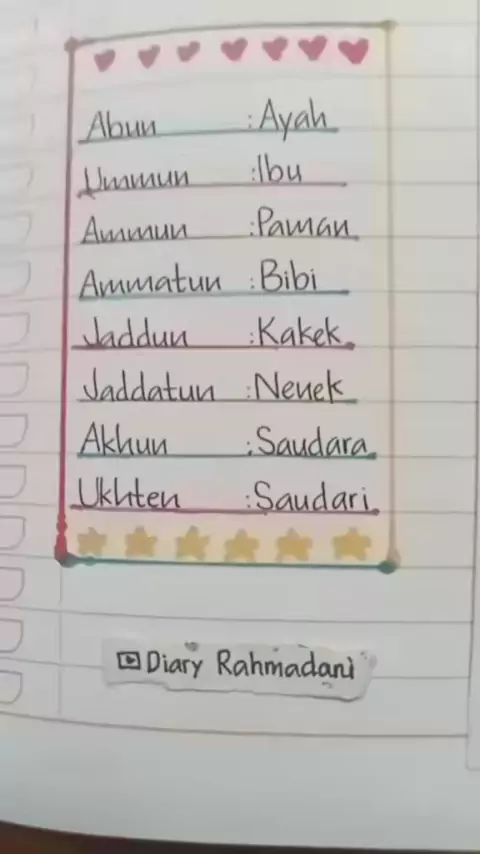 Abun : Ayah
Ummun : Ibu
Ammun : Paman
Ammatun : Bibi
Jaddun : Kakek
Jaddatun : Nenek
Akhun : Saudara
Ukhten : Saudari
Diary Rahmadani